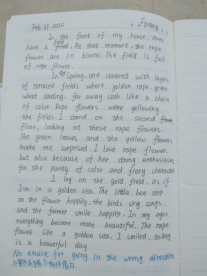 Feb 27, 2020
Spring
In the front of my house, there
have a field. At that moment, the rape
flower are in bloom. The field is full
of rape flower.
In Spring, are covered with layers
of terraced fields where golden rape, green
wheat, far away look like a chain
of color. Rape flowers were yellowing
the fields. I stand on the second
floor, looking at these rape flowers.
The green leaves, and the yellow flower,
make me surprised. I love rape flower,
but also because of her strong enthusiasm
for the purity of color and
I lay on the gold field, as if
I'm in a golden sea. The little bee
on the flower happily, the birds sing songs
and the farmer smile happier. In my eyes,
everything become more beautiful. The rape
flower like a golden sea. I smiled, today
is a beautiful day.
No excuse for going in the wrong direction